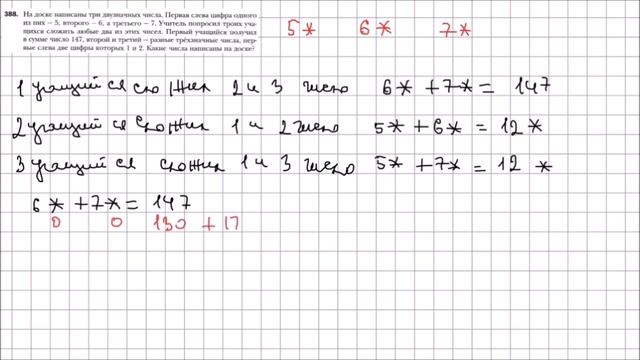 388. На доске написаны три двузначных числа. Первая слева цифра одного
из них – 5, второго – 6, а третьего – 7. Учитель попросил троих уча-
щихся сложить любые два из этих чисел. Первый учащийся получил
в сумме число 147, второй и третий – разные трёхзначные числа, пер-
вые слева две цифры которых 1 и 2. Какие числа написаны на доске?
5* 6* 7*
1 учащийся сложил 2 и 3 число 6* + 7* = 147
2 учащийся сложил 1 и 2 число 5* + 6* = 12*
3 учащийся сложил 1 и 3 число 5* + 7* = 12 *
6* + 7* = 147
0 0 130 + 17